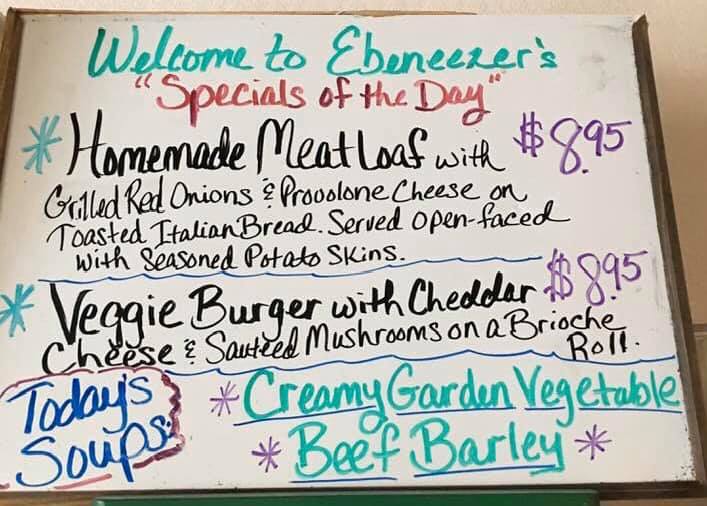 Welcome to Ebeneezer's
"Specials of the Day"
* Homemade Meatloaf with $8.95
Grilled Red Onions & Provolone Cheese on
Toasted Italian Bread. Served open-faced
with Seasoned Potato Skins.
* Veggie Burger with Cheddar $8.95
Cheese & Sautéed Mushrooms on a Brioche
Roll.
Today's * Creamy Garden Vegetable
Soups: * Beef Barley *